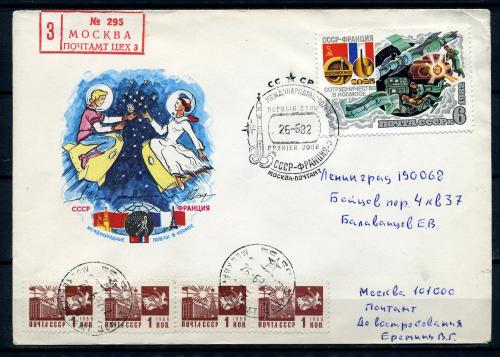 З
№ 295
МОСКВА
ПОЧТАМТ ЦЕХ 3
СССР-ФРАНЦИЯ
СОТРУДНИЧЕСТВО
В КОСМОСЕ
ПОЧТА СССР
6
1982
СС СР
ПЕРВЫЙ ДЕНЬ
25-6-82
PREMIER JOUR
СССР-ФРАНЦИЯ
МОСКВА-ПОЧТАМТ
СССР ФРАНЦИЯ
МЕЖДУНАРОДНЫЕ ПОЛЕТЫ В КОСМОС
Ленинград 190068
Бойцов пер. 4 кв 37
Балаванцев Е.В.
Москва 101000
Почтамт
Довостребования
Еремину В.Г.
ПОЧТА СССР 1 КОП
ПОЧТА СССР 1 КОП
ПОЧТА СССР 1 КОП
ПОЧТА СССР 1 КОП